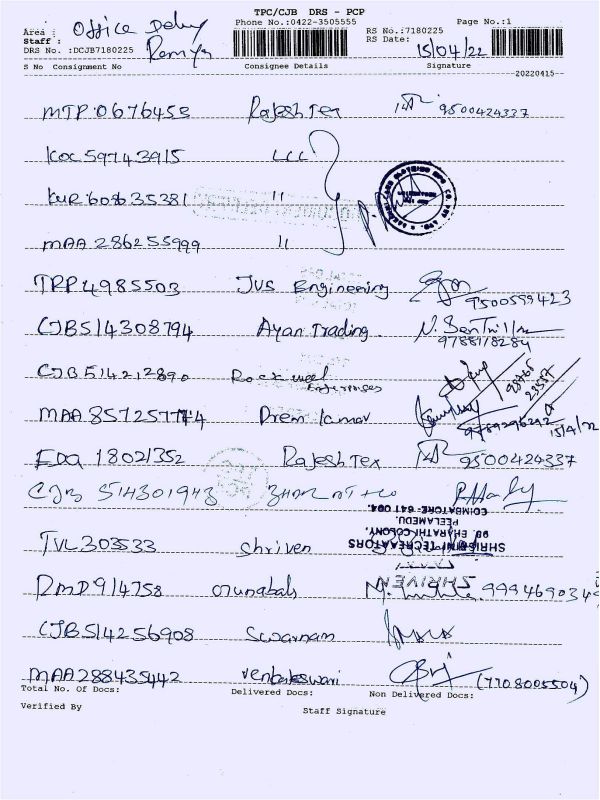 TPC/CJB DRS - PCP
Area : Office Delvy Phone No.:0422-3505555 RS No.:7180225 Page No.:1
Staff : Remya RS Date: 15/04/22
DRS No. :DCJB7180225
S No Consignment No Consignee Details Signature
20220415
MTP 0676453 Rajesh Tex 9500424337
KOC 59743915 LCC
KUR 608635381 11
MAA 286255999 11
TRP 4985503 JVS Engineering 9500559423
CJB514308794 Ayan Trading 9788118284
CJB514212890 Rock weel Enterprises
MAA 857257744 Prem kumar 9789298292
15/4/22
EDA 18021352 Rajesh Tex 9500424337
CJB 514301943
COIMBATORE-641 004.
PEELAMEDU,
98, BHARATHI COLONY,
TVL303533 Shriven
SHRIVEN
DMD914758 arunabals 999469034
CJB514256908 Swarnam
MAA288435442 Venbakeswari (7708005504)
Total No. Of Docs: Delivered Docs: Non Delivered Docs:
Verified By Staff Signature